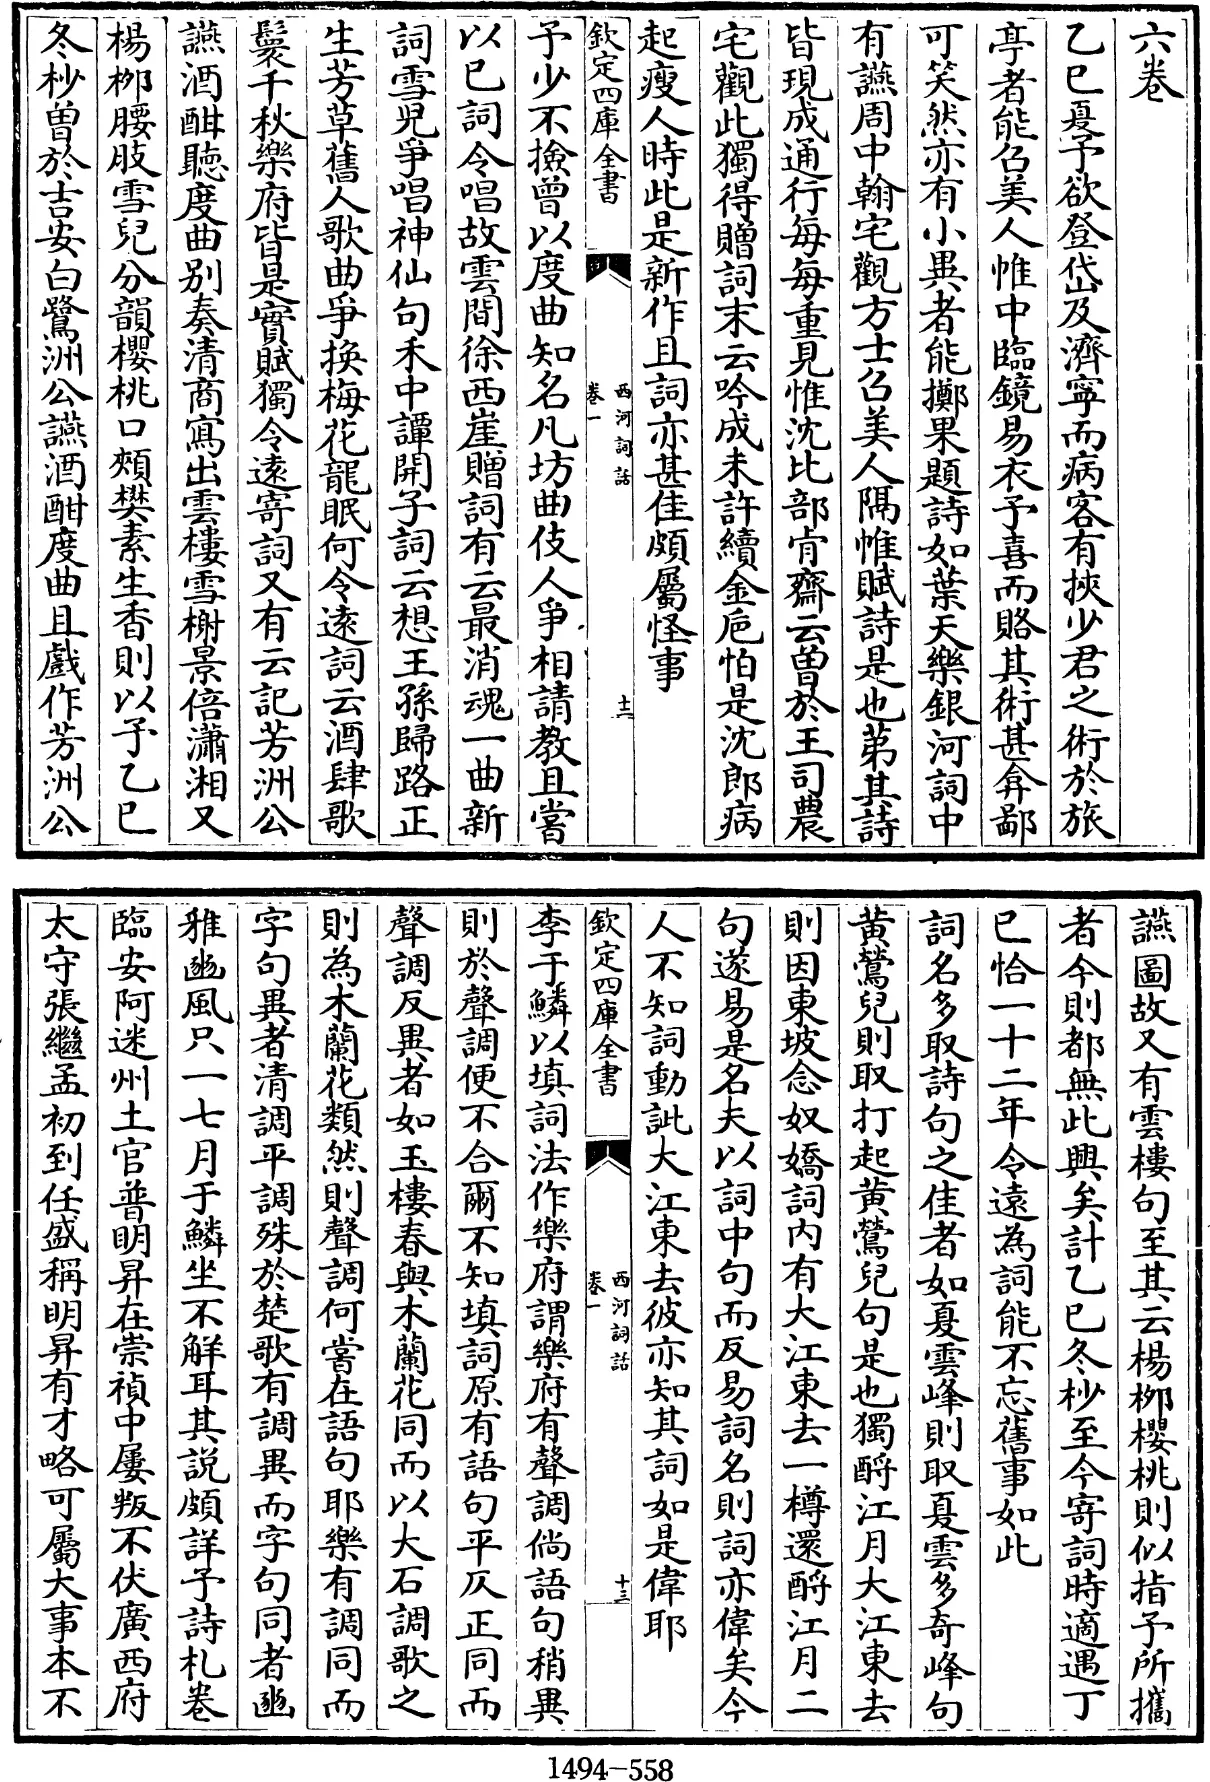 六卷
乙巳夏予欲登岱及濟寧而病客有挾少君之術於旅
亭者能召美人惟中臨鏡易衣予喜而賂其術甚弇鄙
可笑然亦有小異者能擲果題詩如葉天樂銀河詞中
有讌周中翰宅觀方士召美人隔惟賦詩是也苐其詩
皆現成通行每每重見惟沈比部㫖齋云曽於王司農
宅觀此獨得贈詞末云吟成未許續金巵怕是沈郎病
起瘦人時此是新作且詞亦甚佳頗屬怪事
欽定四庫全書
西河詞話
卷一
十二
予少不撿曽以度曲知名凡坊曲伎人爭相請教且嘗
以已詞令唱故雲間徐西崖贈詞有云最消魂一曲新
詞雪兒爭唱神仙句禾中譚開子詞云想王孫歸路正
生芳草舊人歌曲爭換梅花龍眠何令遠詞云酒肆歌
鬟千秋樂府皆是實賦獨令遠寄詞又有云記芳洲公
讌酒酣聽度曲别奏清商寫出雲樓雪榭景倍瀟湘又
楊柳腰肢雪兒分韻櫻桃口頰樊素生香則以予乙巳
冬杪曽於吉安白鷺洲公讌酒酣度曲且戲作芳洲公
讌圖故又有雲樓句至其云楊柳櫻桃則似指予所攜
者今則都無此興矣計乙巳冬杪至今寄詞時適遇丁
巳恰一十二年令遠為詞能不忘舊事如此
詞名多取詩句之佳者如夏雲峰則取夏雲多奇峰句
黄鶯兒則取打起黄鶯兒句是也獨酹江月大江東去
則因東坡念奴嬌詞内有大江東去一樽還酹江月二
句遂易是名夫以詞中句而反易詞名則詞亦偉矣今
人不知詞動訿大江東去彼亦知其詞如是偉耶
欽定四庫全書
西河詞話
卷一
十三
李于鱗以填詞法作樂府謂樂府有聲調倘語句稍異
則於聲調便不合爾不知填詞原有語句平仄正同而
聲調反異者如玉樓春與木蘭花同而以大石調歌之
則為木蘭花類然則聲調何嘗在語句耶樂有調同而
字句異者清調平調殊於楚歌有調異而字句同者豳
雅豳風只一七月于鱗坐不解耳其説頗詳予詩札卷
臨安阿迷州土官普明昇在崇禎中屢叛不伏廣西府
太守張繼孟初到任盛稱明昇有才略可屬大事本不
1494-558